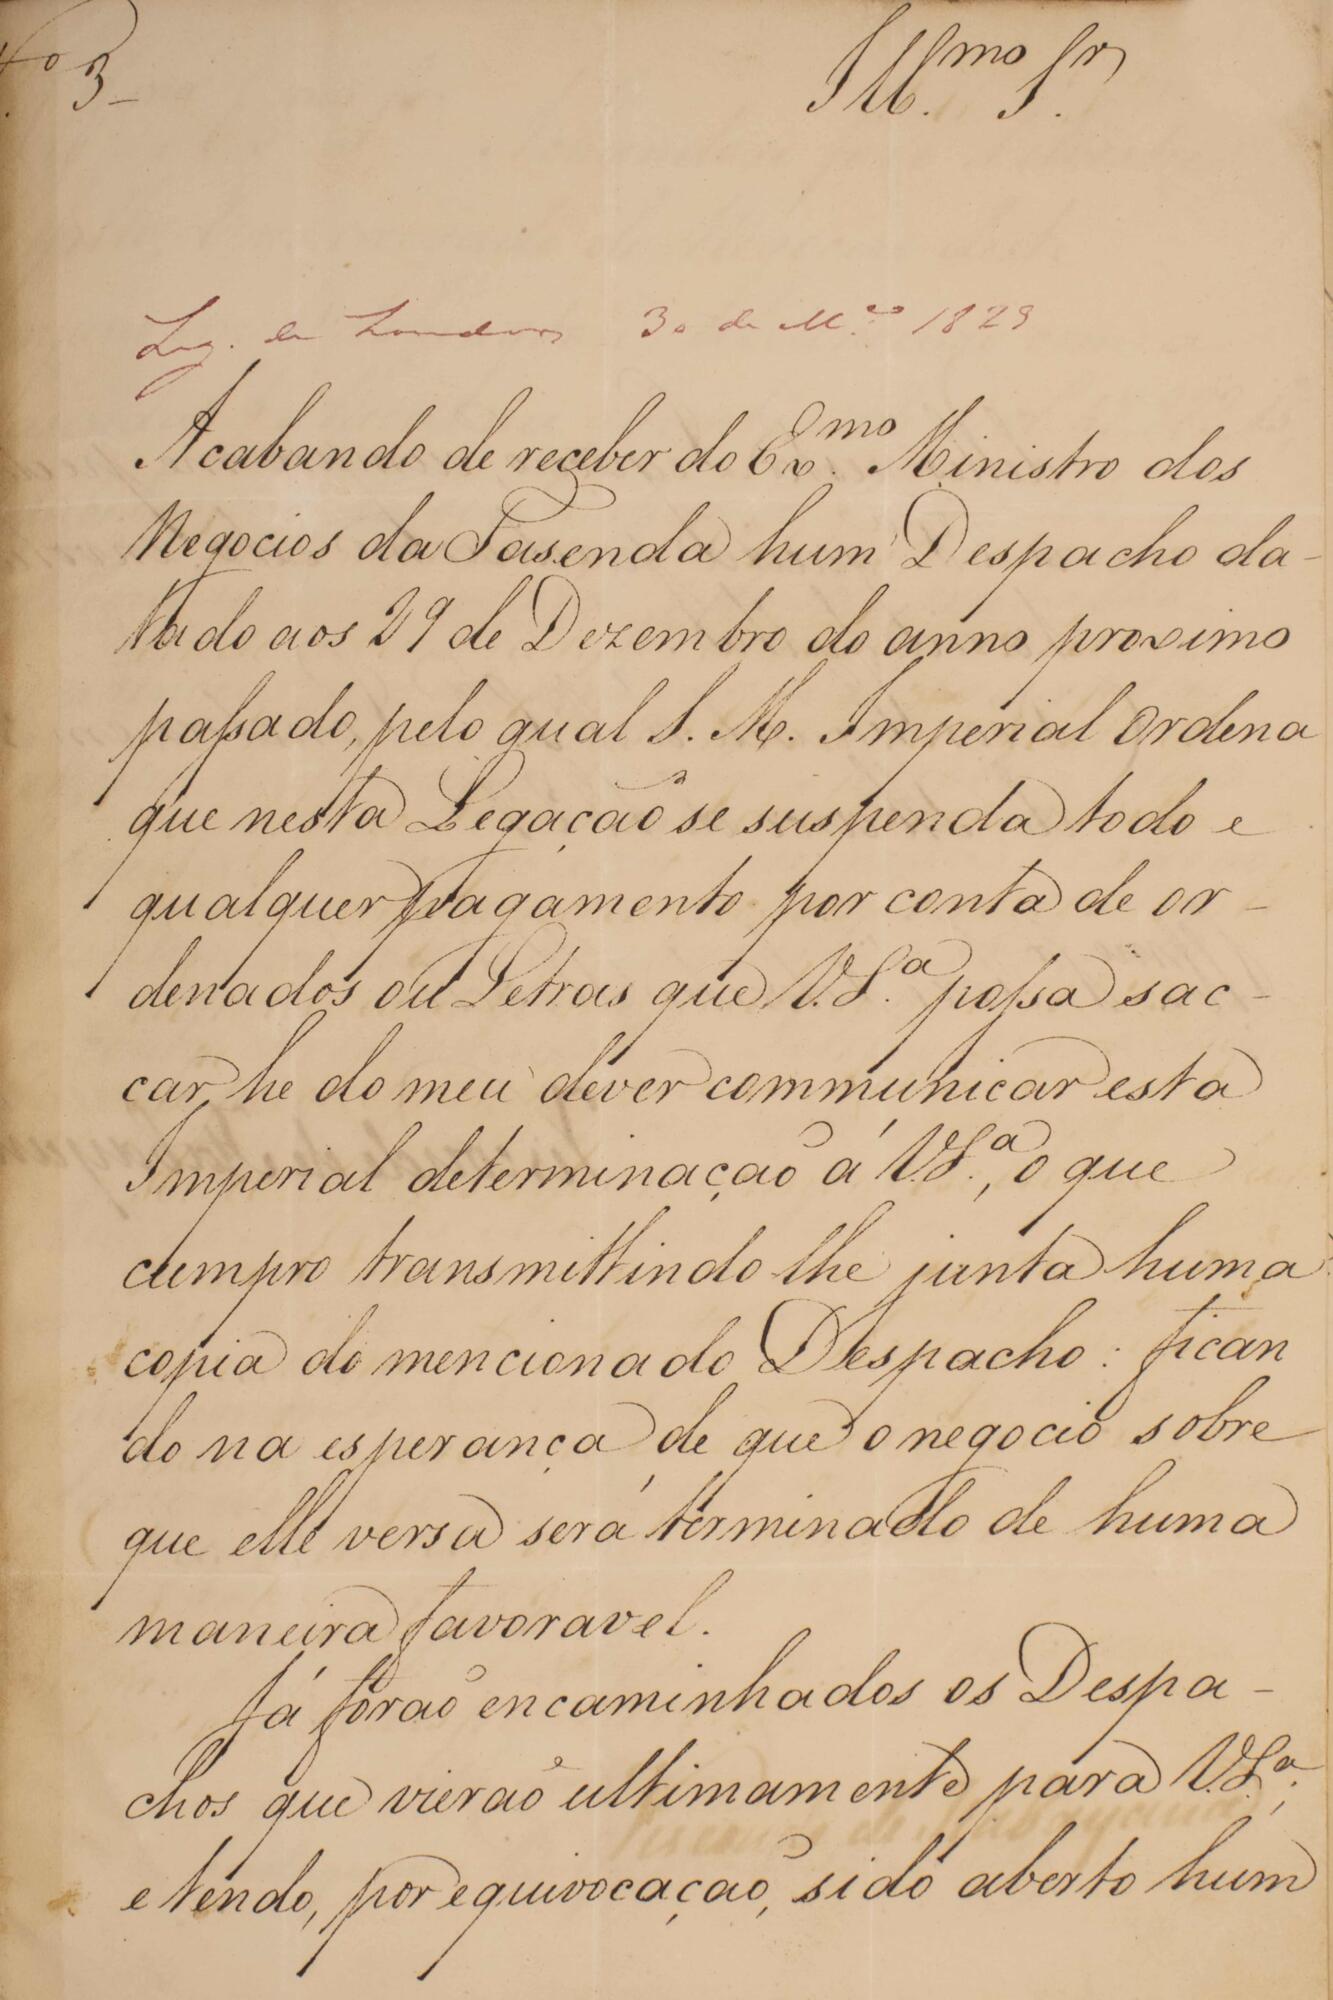 Nº 3
Ill.mo Sr.
Leg. de Londres 30 de M.ço 1829
Acabando de receber do Ex.mo Ministro dos
Negocios da Fasenda hum Despacho da-
tado aos 29 de Dezembro do anno proximo
passado, pelo qual S. M. Imperial Ordena
que nesta Legação se suspenda todo e
qualquer pagamento por conta de or-
denados ou Letras que V.S.ª possa sac-
car, he do meu dever communicar esta
Imperial determinação á V.S.ª, o que
cumpro transmittindo lhe junta huma
copia do mencionado Despacho: fican
do na esperança de que o negocio sobre
que elle versa será terminado de huma
maneira favoravel.
Já forão encaminhados os Despa-
chos que vierão ultimamente para V.S.ª;
e tendo, por equivocação, sido aberto hum